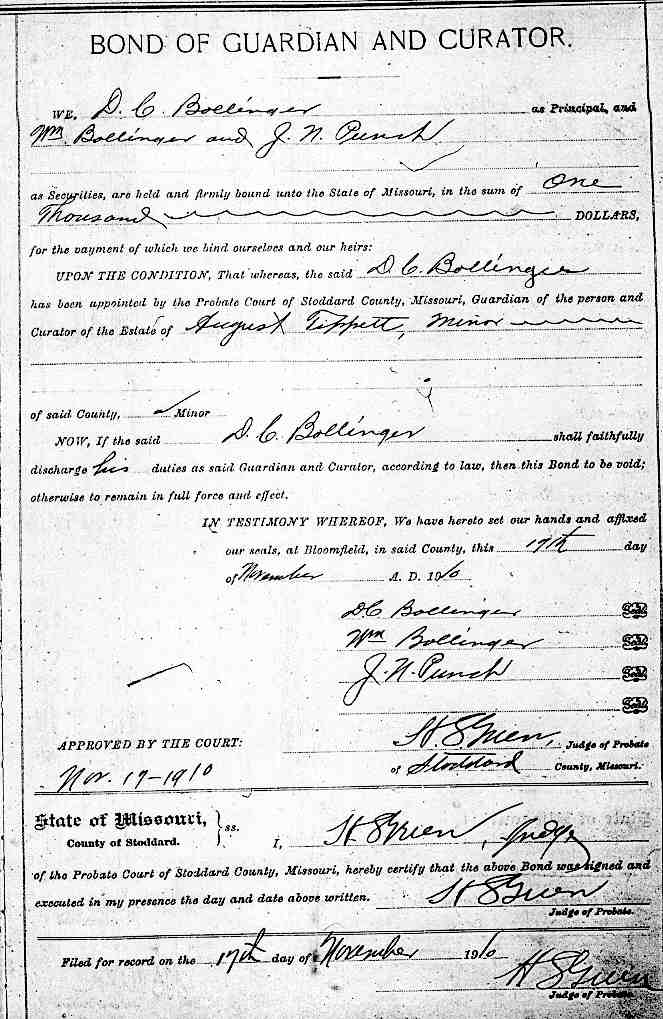 BOND OF GUARDIAN AND CURATOR.
WE, D. C. Bollinger as Principal, and
Wm Bollinger and J. N. Punch
as Securities, are held and firmly bound unto the State of Missouri, in the sum of One
Thousand DOLLARS,
for the payment of which we bind ourselves and our heirs:
UPON THE CONDITION, That whereas, the said D. C. Bollinger
has been appointed by the Probate Court of Stoddard County, Missouri, Guardian of the person and
Curator of the Estate of August Tippett, Minor
of said County, Minor
NOW, If the said D. C. Bollinger shall faithfully
discharge his duties as said Guardian and Curator, according to law, then this Bond to be void;
otherwise to remain in full force and effect.
IN TESTIMONY WHEREOF, We have hereto set our hands and affixed
our seals, at Bloomfield, in said County, this 17th day
of November A. D. 1910
D C Bollinger Seal
Wm Bollinger Seal
J. N. Punch Seal
Seal
APPROVED BY THE COURT: H. S. Green, Judge of Probate
Nov. 17-1910 of Stoddard County, Missouri.
State of Missouri,
County of Stoddard. } ss. I, H S Green, Judge
of the Probate Court of Stoddard County, Missouri, hereby certify that the above Bond was signed and
executed in my presence the day and date above written. H S Green
Judge of Probate.
Filed for record on the 17th day of November 1910
H S Green
Judge of Probate.